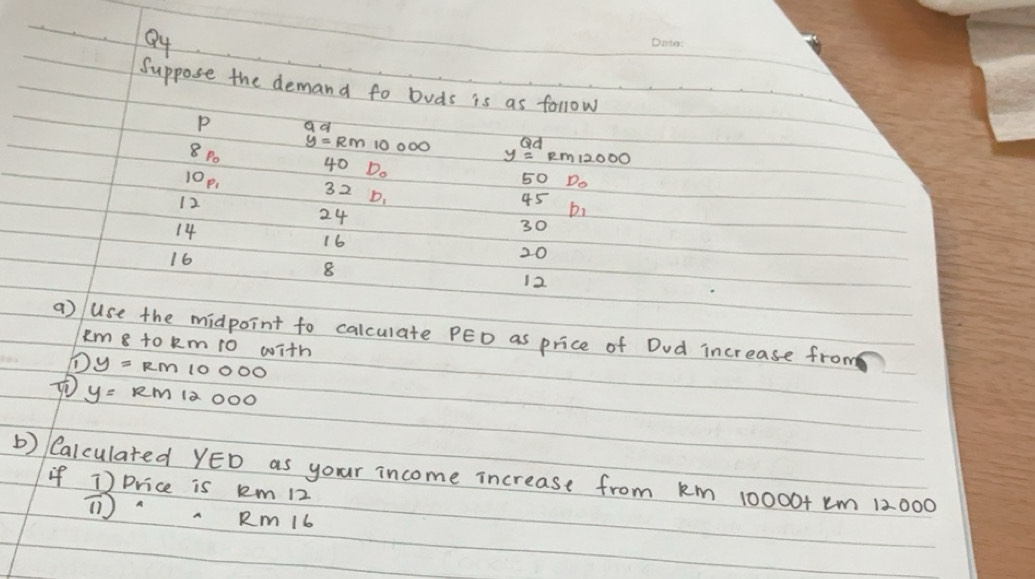 Date:
Q4
Suppose the demand fo Dvds is as follow
P Qd Qd
y = RM 10 000 y = RM 12000
8 P₀ 40 D₀ 50 D₀
10 P₁ 32 D₁ 45 D₁
12 24 30
14 16 20
16 8 12
a) Use the midpoint fo calculate PED as price of Dvd increase from
RM 8 to RM 10 with
i) y = RM 10 000
ii) y = RM 12 000
b) Calculated YED as your income increase from RM 10000t RM 12000
if i) Price is RM 12
ii) " " RM 16